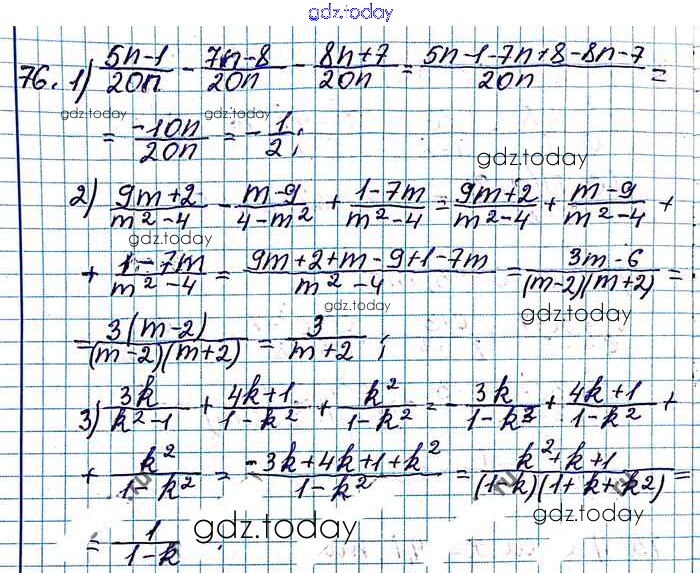 gdz.today
76. 1) (5n-1)/(20n) - (7n-8)/(20n) - (8n+7)/(20n) = (5n-1-7n+8-8n-7)/(20n) =
gdz.today gdz.today gdz.today
= (-10n)/(20n) = -1/2;
gdz.today
2) (9m+2)/(m²-4) - (m-9)/(4-m²) + (1-7m)/(m²-4) = (9m+2)/(m²-4) + (m-9)/(m²-4) +
gdz.today
+ (1-7m)/(m²-4) = (9m+2+m-9+1-7m)/(m²-4) = (3m-6)/((m-2)(m+2)) =
gdz.today gdz.today
= (3(m-2))/((m-2)(m+2)) = 3/(m+2);
3) (3k)/(k²-1) + (4k+1)/(1-k²) + (k²)/(1-k²) = -(3k)/(1-k³) + (4k+1)/(1-k²) +
+ (k²)/(1-k²) = (-3k+4k+1+k²)/(1-k²) = (k²+k+1)/((1-k)(1+k+k²)) =
gdz.today
= 1/(1-k)
gdz.today